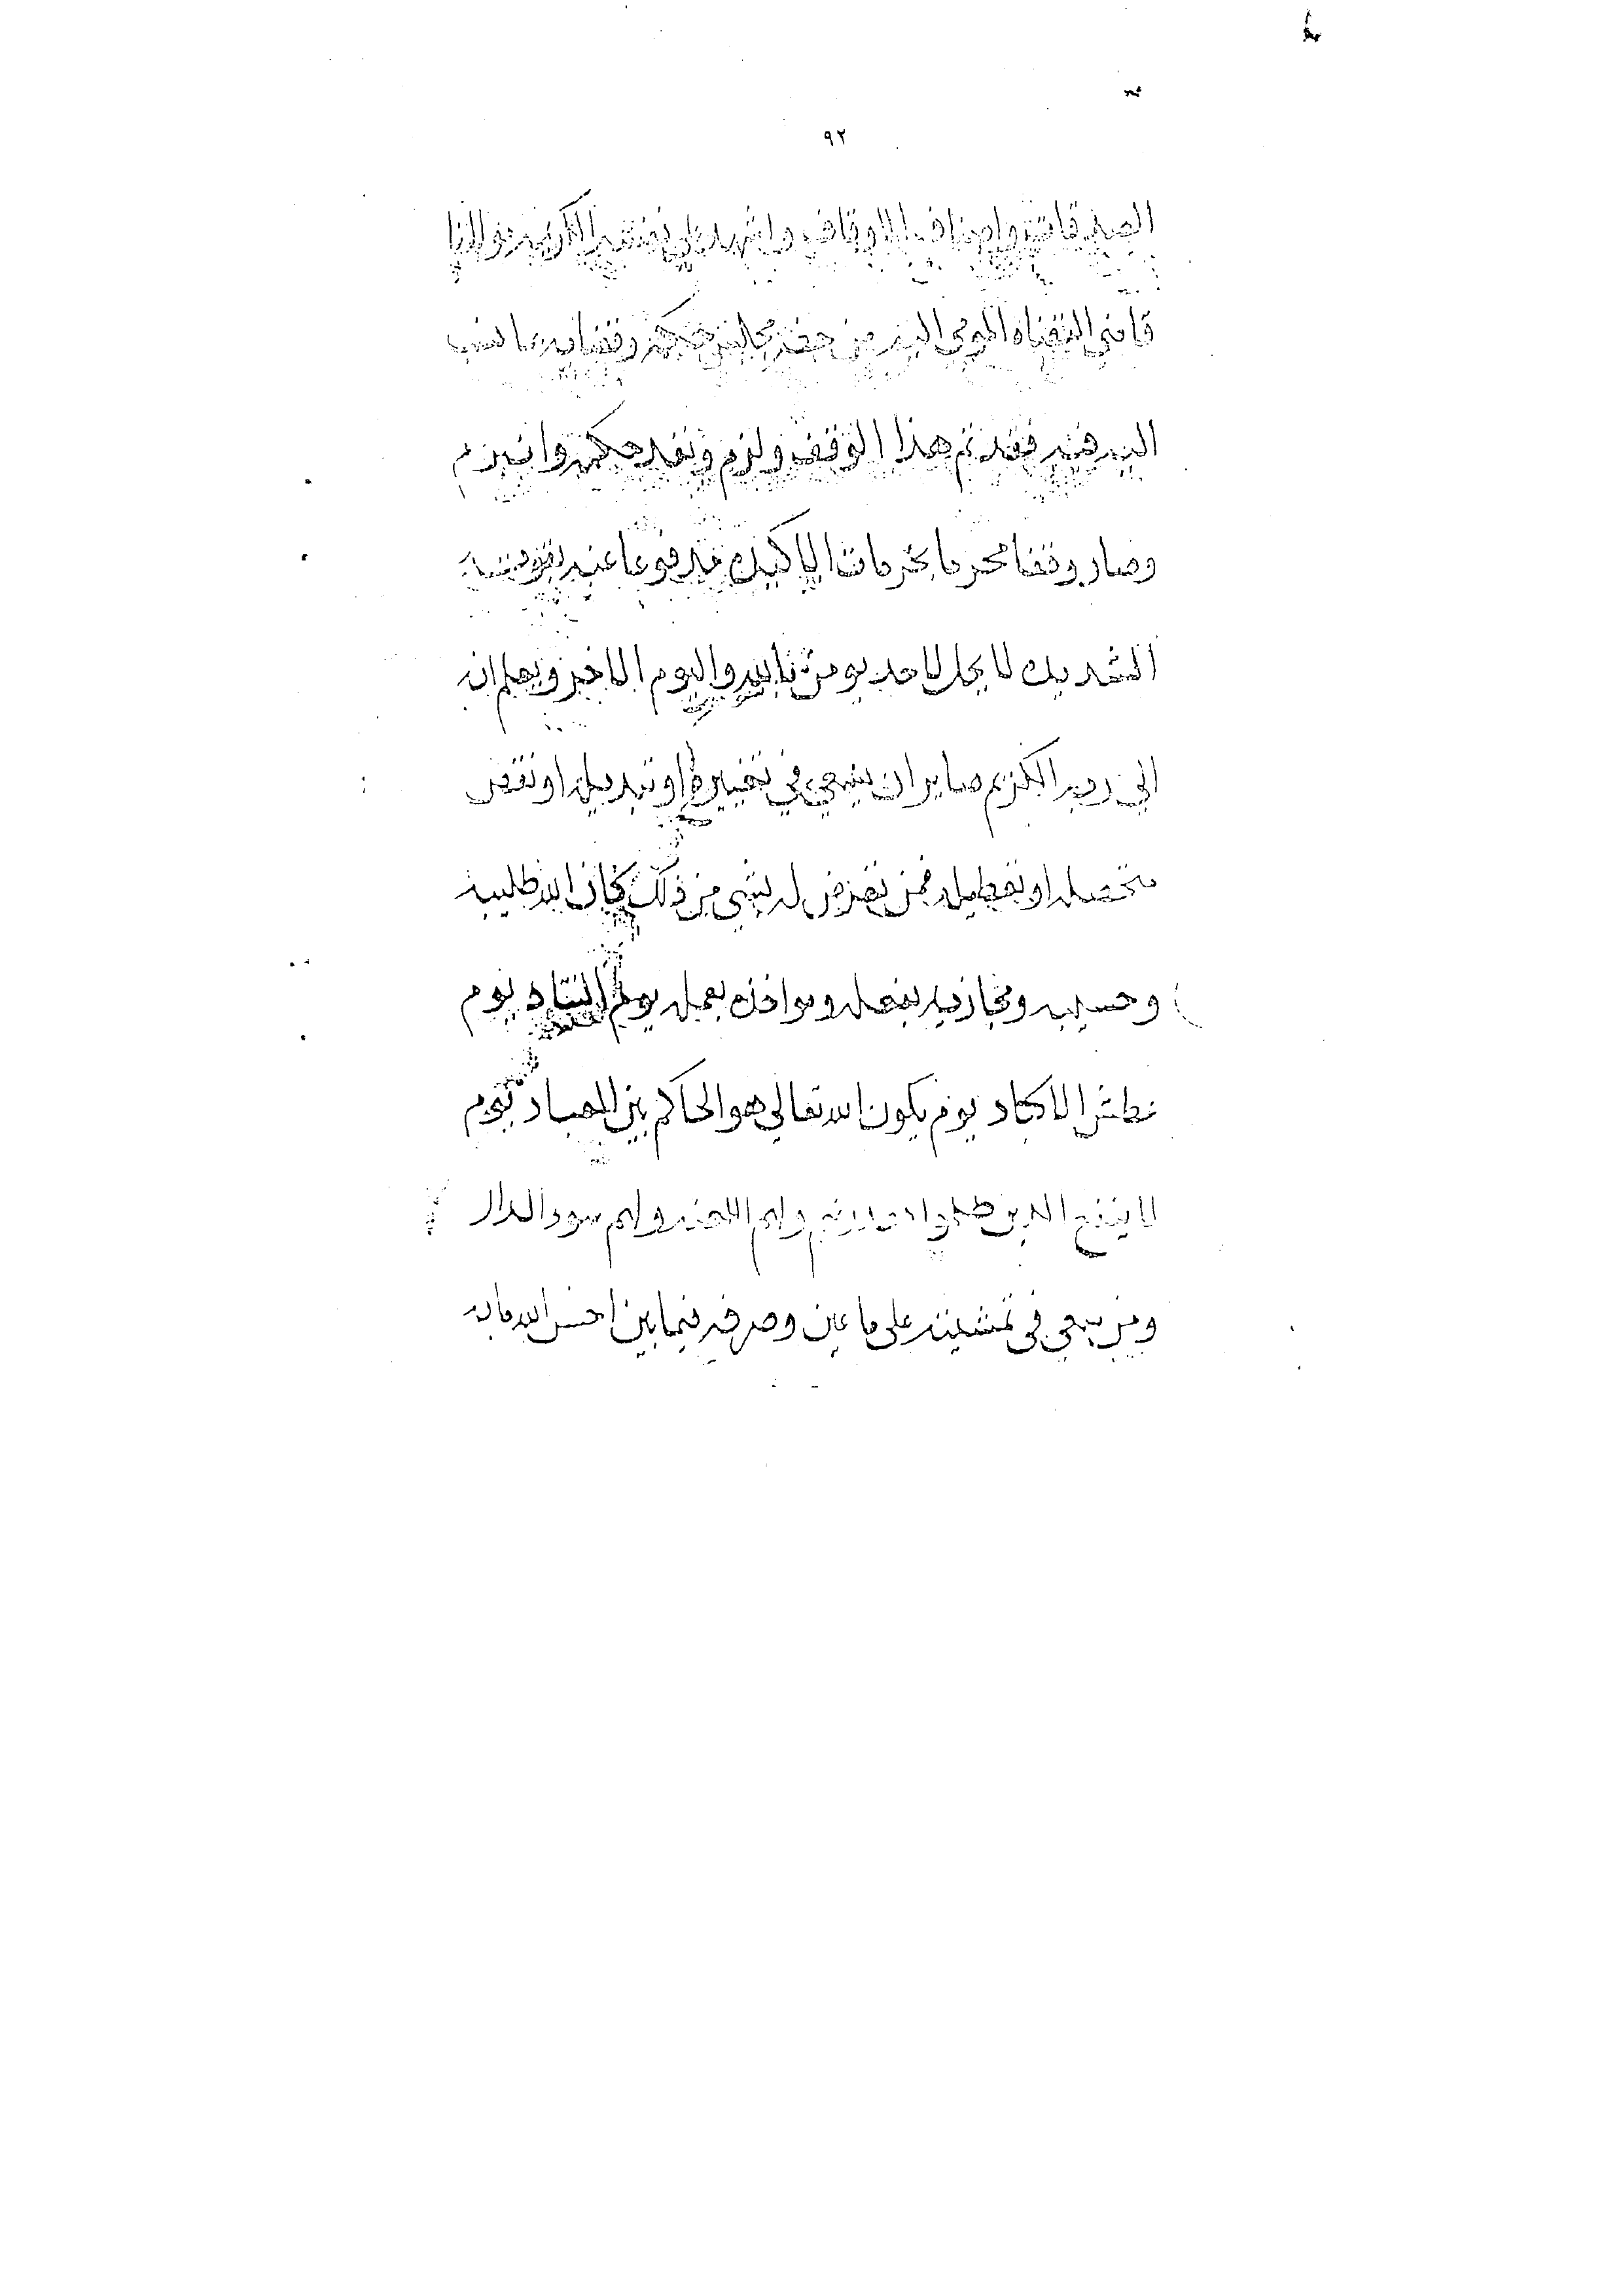 ٩٢
الصدقات واصناف الاوقاف واشهد على نفسه الكريمة مولانا
قاضي القضاة المومى اليه من حضر مجلس حكمه وقضايه بما نسب
اليه فيه فقد تم هذا الوقف ولزم ونفد حكمه وانبرم
وصار وقفا محرما بحرمات الله الاكيدة مدفوعا عنه بقوته
الشديدة لا يحل لاحد يومن بالله واليوم الاخر ويعلم انه
الى ربه الكريم صاير ان يسعى في تغييره او تبديله او نقض
او تعطيله فمن تعرض له بشي من ذلك كان الله طليبه
وحسيبه ومجازيه بفعله ومواخذه بعمله يوم التناد يوم
عطش الاكباد يوم يكون الله تعالى هو الحاكم بين العباد يوم
لا ينفع الظالمين معذرتهم ولهم اللعنة ولهم سوء الدار
ومن سعى في تمشيته على ما عين وصرفه فيما بين احسن الله مابه